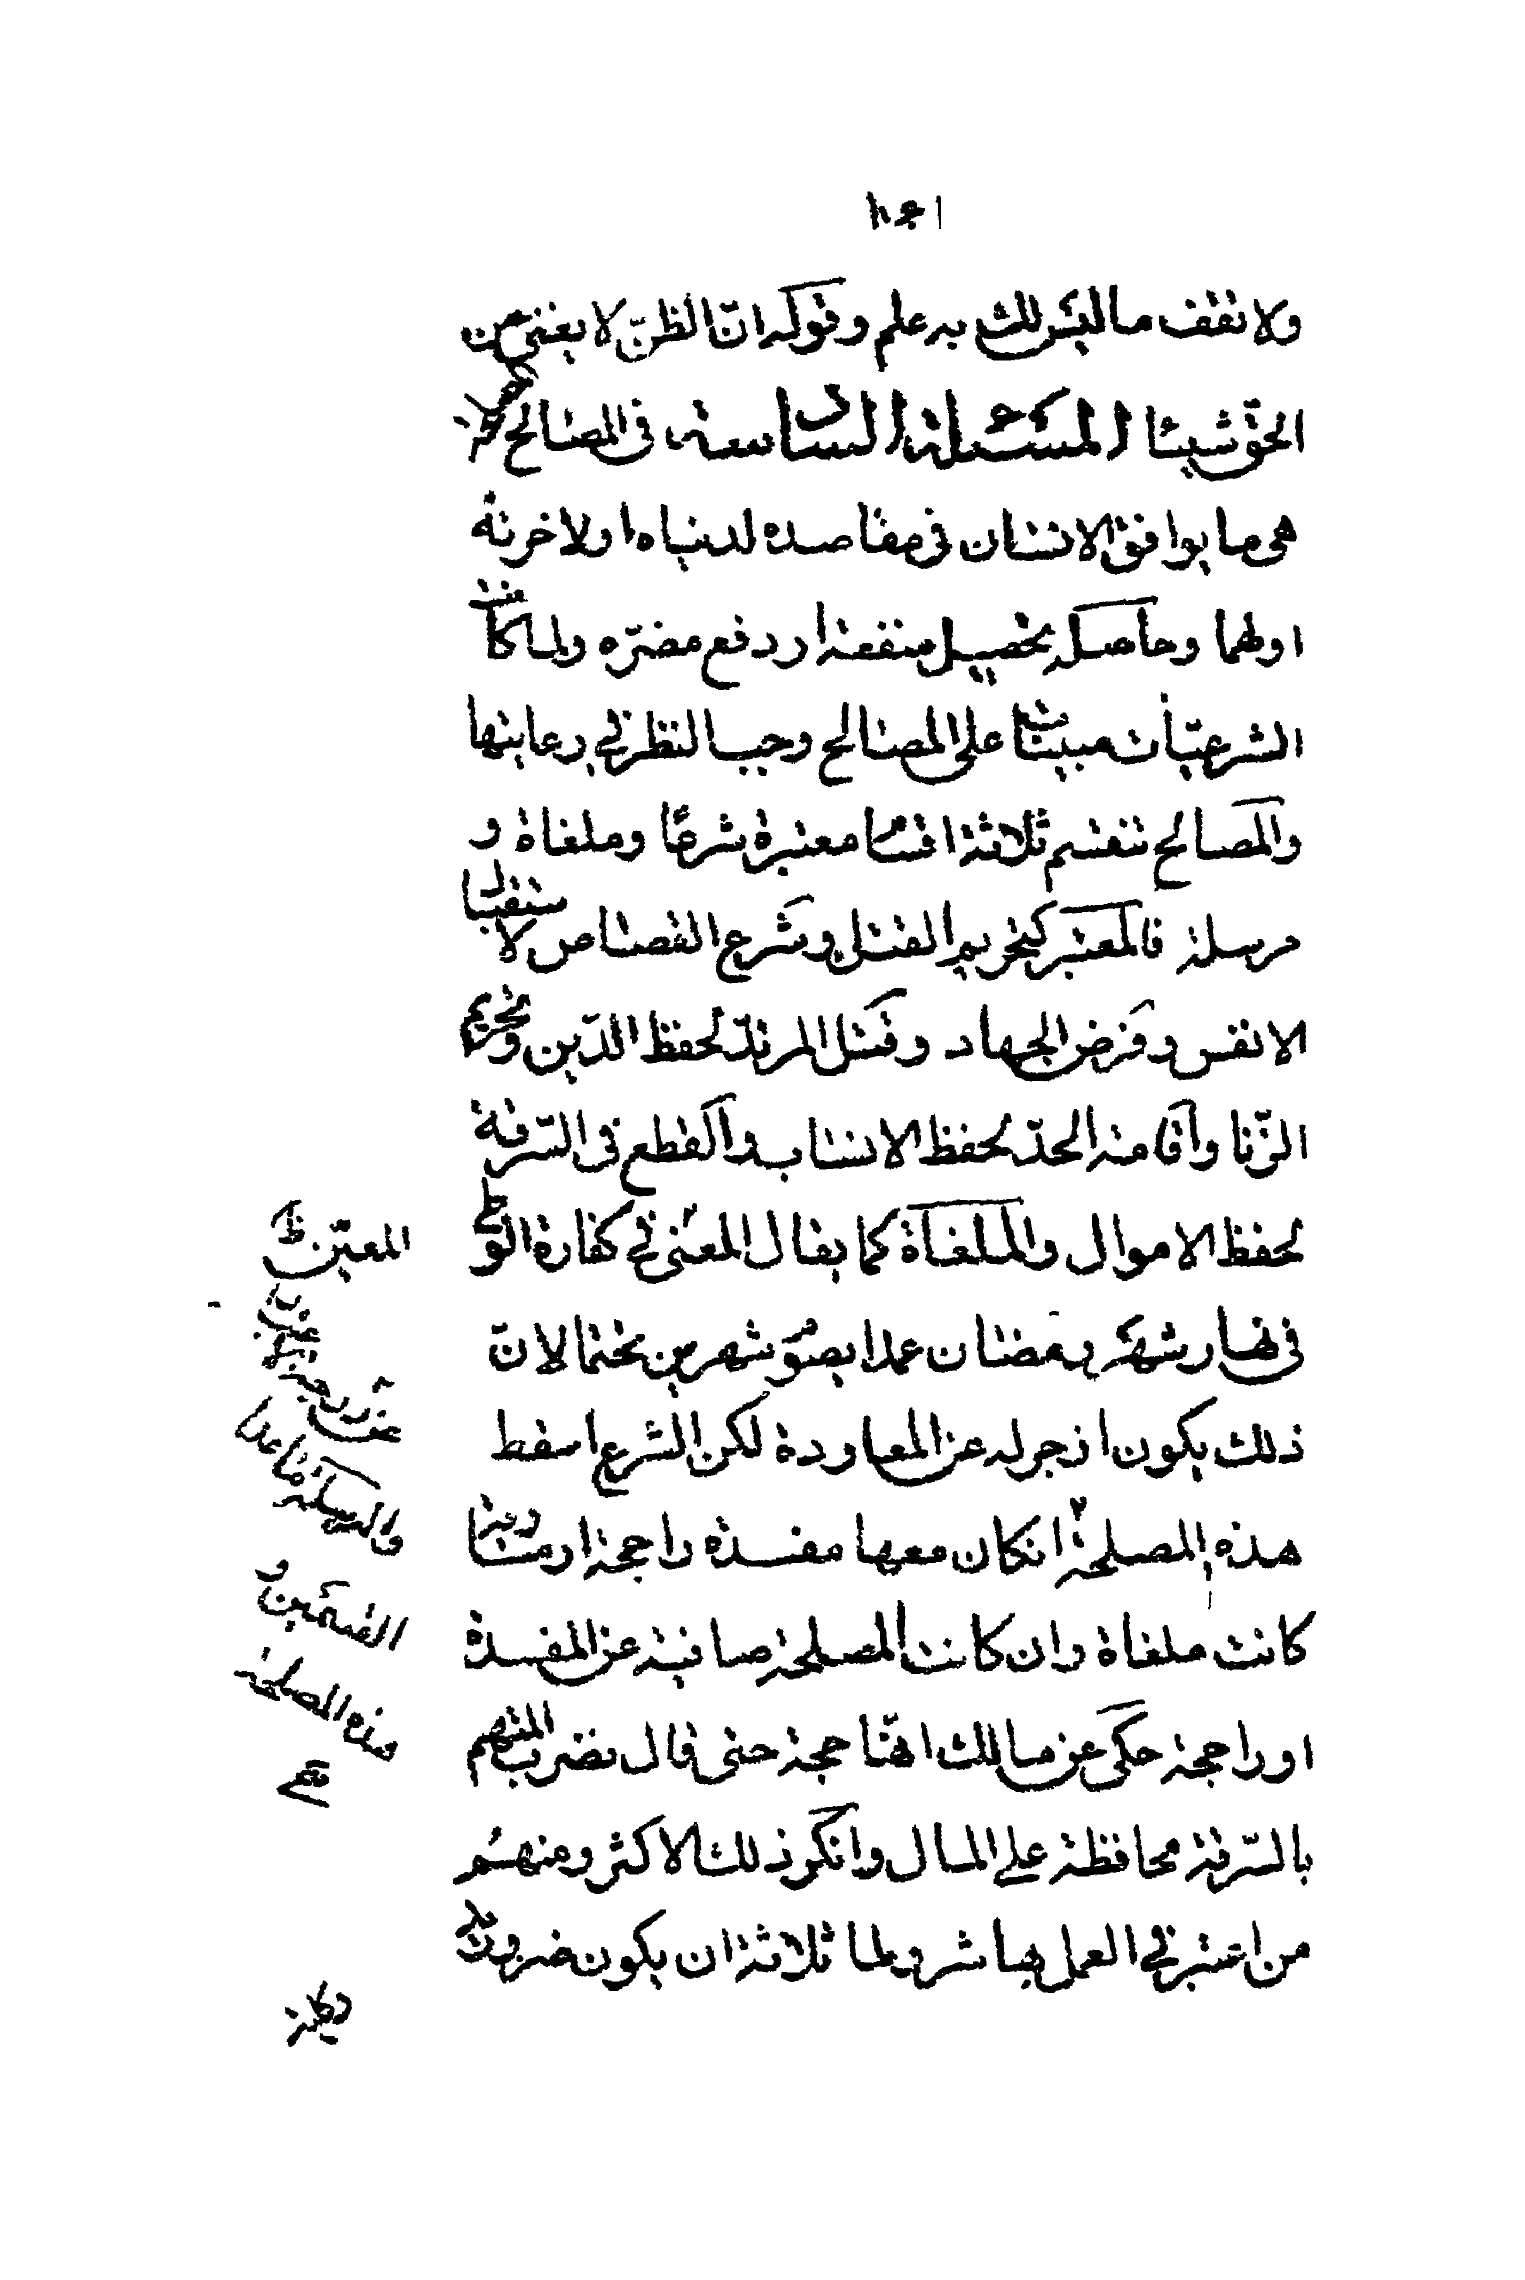 ولا تقف ما ليس لك به علم وقوله ان الظنّ لا يغنى من
الحقّ شيئا المسئلة السادسة فى المصالح
هى ما يوافق الانسان فى مقاصده لدنياه او لاخرته
او لهما وحاصله تحصيل منفعة او دفع مضرّه ولما كانت
الشرعيّات مبنيّات على المصالح وجب النظر فى رعايتها
والمصالح تنقسم ثلاثة اقسام معتبرة شرعًا وملغاة و
مرسلة فالمعتبر كتحريم القتل وشرع القصاص لاستقباء
الانفس وفرض الجهاد وقتل المرتدّ لحفظ الدّين وتحريم
الزّنا واقامة الحدّ لحفظ الانساب والقطع فى السّرقة
لحفظ الاموال والملغاة كما يقال المعنى فى كفارة الوطى
فى نهار شهر رمضان عمدا بصوم شهرين تختما لانّ
ذلك يكون ازجر له عن المعاودة لكن الشرع اسقط
هذه المصلحة ان كان معها مفسدة راجحة او مساوية
كانت ملغاة وان كانت المصلحة صافية عن المفسدة
او راجحة حكى عن مالك انّها حجة حتى قال نضرب المتهم
بالسّرقة محافظة على المال وانكر ذلك الاكثر ومنهم
من اعتبر فى العمل بها شروطا ثلاثة ان يكون ضروريّة
المعيّن
والمرسلة ما عدا
القسمين و
هذه المصلحة